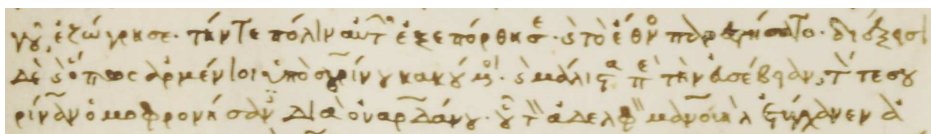 νου, ἐζώγρησε. τήν τε πόλιν αὐτῶν ἐξεπόρθησε. καὶ τὸ ἔθνος παρεστήσατο. διέξεισι
δὲ καὶ ὅπως ἀρμένιοι ὑπὸ συρίνου κακούμενοι. καὶ μάλιστα ἐπὶ τὴν ἀσέβειαν, τόν τε σου
ρίναν ὁμοφρονήσαντες διὰ ὀυαρδάνου. οὗ τὸν ἀδελφὸν μανουὴλ ἐτύγχανεν ἀ